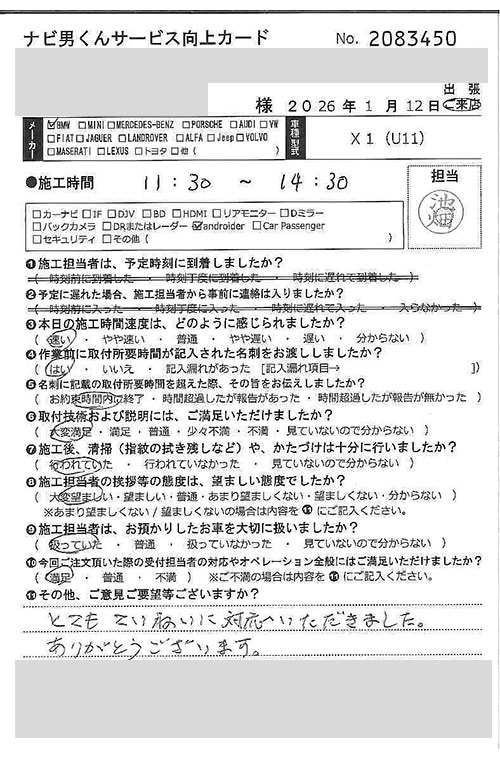 ナビ男くんサービス向上カード No. 2083450
出 張
様 2026 年 1 月 12 日 ・ ご来店
メーカー ☑BMW □MINI □MERCEDES-BENZ □PORSCHE □AUDI □VW
□FIAT □JAGUER □LANDROVER □ALFA □Jeep □VOLVO
□MASERATI □LEXUS □トヨタ □他 ( )
車種型式 X1 (U11)
●施工時間 11:30 ~ 14:30
担当
池畑
□カーナビ □IF □DJV □BD □HDMI □リアモニター □Dミラー
□バックカメラ □DRまたはレーダー ☑androider □Car Passenger
□セキュリティ □その他 ( )
❶施工担当者は、予定時刻に到着しましたか?
( 時刻前に到着した ・ 時刻丁度に到着した ・ 時刻に遅れて到着した )
❷予定に遅れた場合、施工担当者から事前に連絡は入りましたか?
( 時刻前に入った ・ 時刻丁度に入った ・ 時刻に遅れて入った ・ 入らなかった )
❸本日の施工時間速度は、どのように感じられましたか?
( 速い ・ やや速い ・ 普通 ・ やや遅い ・ 遅い ・ 分からない )
❹作業前に取付所要時間が記入された名刺をお渡ししましたか?
( はい ・ いいえ ・ 記入漏れがあった [記入漏れ項目→ ])
❺名刺に記載の取付所要時間を超えた際、その旨をお伝えしましたか?
( お約束時間内に終了 ・ 時間超過したが報告があった ・ 時間超過したが報告が無かった )
❻取付技術および説明には、ご満足いただけましたか?
( 大変満足 ・ 満足 ・ 普通 ・ 少々不満 ・ 不満 ・ 見ていないので分からない )
❼施工後、清掃(指紋の拭き残しなど)や、かたづけは十分に行いましたか?
( 行われていた ・ 行われていなかった ・ 見ていないので分からない )
❽施工担当者の挨拶等の態度は、望ましい態度でしたか?
( 大変望ましい・望ましい・普通・あまり望ましくない・望ましくない・分からない )
※あまり望ましくない / 望ましくないの場合は内容を⓫にご記入ください。
❾施工担当者は、お預かりしたお車を大切に扱いましたか?
( 扱っていた ・ 普通 ・ 扱っていなかった ・ 見ていないので分からない )
❿今回ご注文頂いた際の受付担当者の対応やオペレーション全般にはご満足いただけましたか?
( 満足 ・ 普通 ・ 不満 ) ※ご不満の場合は内容を⓫にご記入ください。
⓫その他、ご意見ご要望等ございますか?
とても ていねいに対応いただきました。
ありがとうございます。